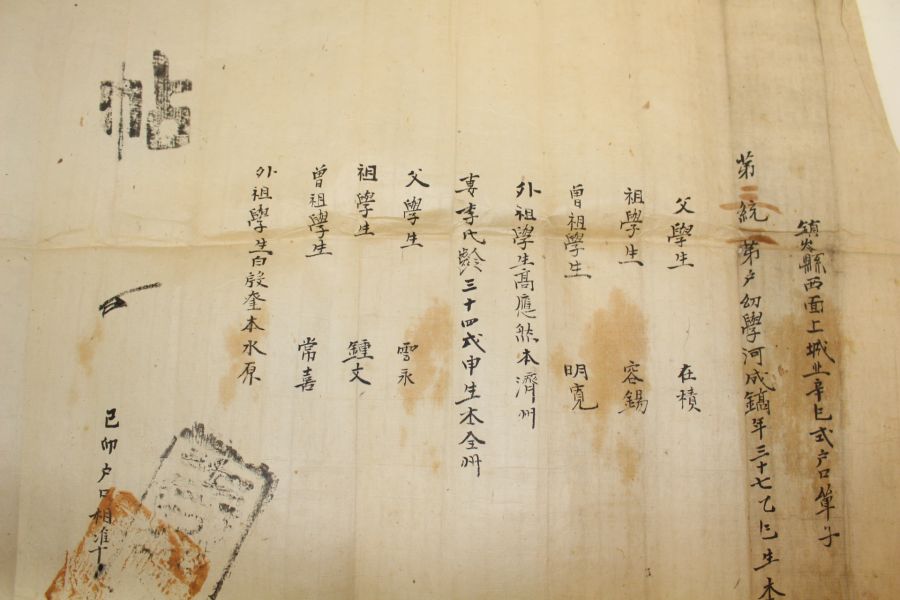 鎭岑縣西面上城北辛巳式戶口單子
第三統一第戶幼學河成鎬年三十七乙巳生本
父學生 在積
祖學生 容錫
曾祖學生 明寬
外祖學生高應然本濟州
妻李氏齡三十四戊申生本全州
父學生 雲永
祖學生 鍾文
曾祖學生 常喜
外祖學生白殷奎本水原
己卯戶口相准丁
帖